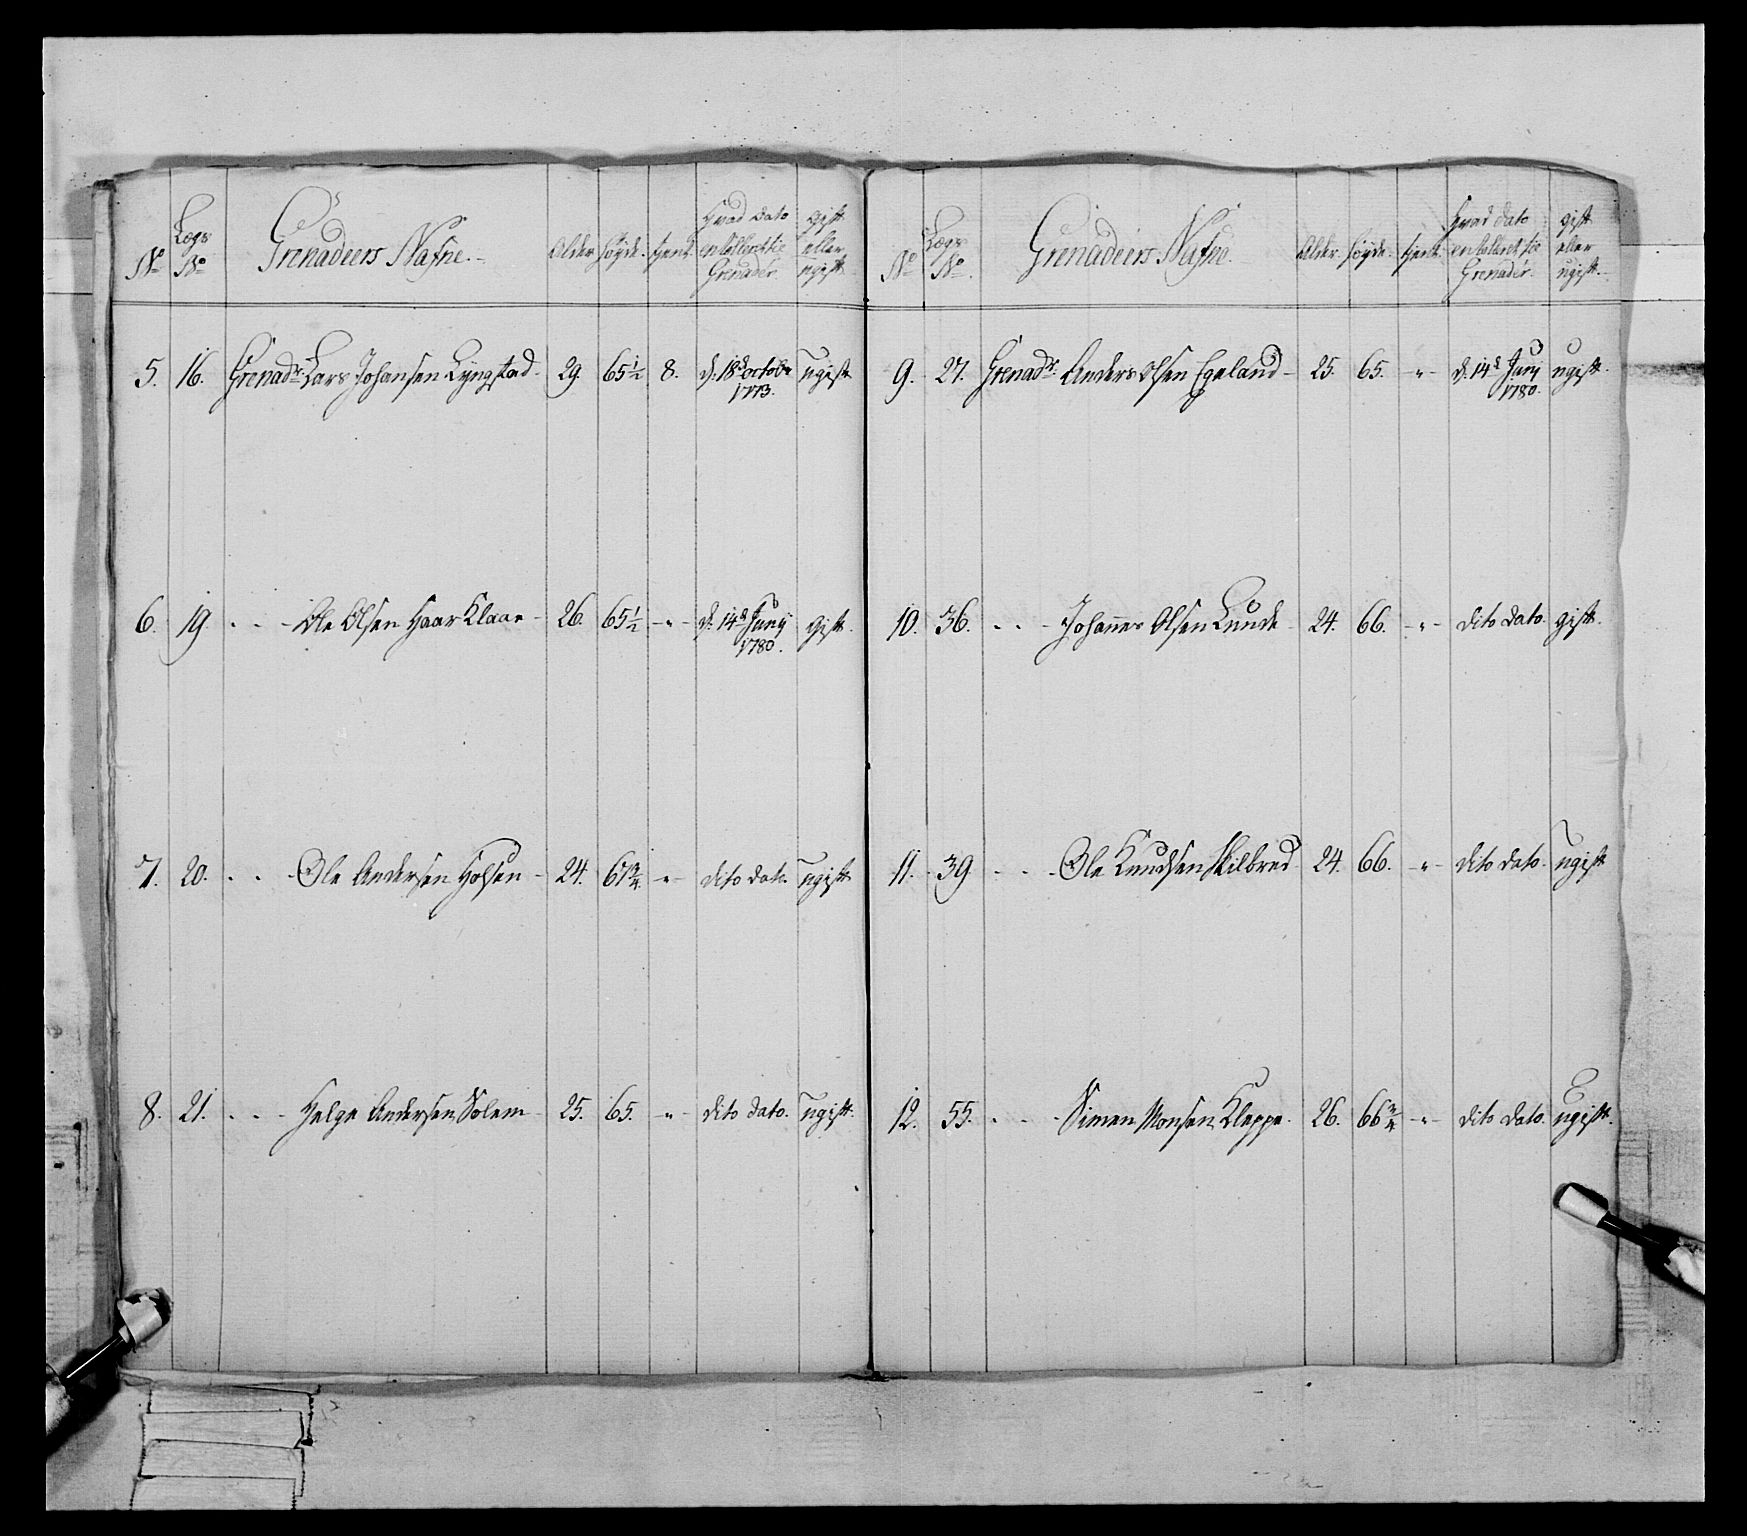 No
Lægs No
Grenadeers Nafne.
Alder
Høyde.
tjent.
Hvad dato enrolleret til Grenader.
gift eller ugift
5. 16. Grenadr. Lars Johansen Lyngstad 29. 65½ 8. d. 18d octobr 1773. ugift
6. 19. - - Ole Olsen Haar Klaae 26. 65½ -"- d. 14d Junij 1780. gift.
7. 20. - - Ole Andersen Holsen 24. 67¾ -"- dito dato. ugift
8. 21. - - Helge Andersen Solem 25. 65. " dito dato. ugift.
No
Lægs No.
Grenadeers Nafne.
Alder.
Høyde.
tjent.
Hvad dato enrolleret til Grenader.
gift eller ugift.
9. 27. Grenadr. Anders Olsen Egeland 25. 65. -"- d. 14d Junij 1780. ugift.
10. 36. - - Johannes Olsen Lunde 24. 66. -"- dito dato. gift.
11. 39 - - Ole Knudsen Skilbred 24. 66. -"- dito dato. ugift
12. 55. - - Simen Monsen Kleppe. 26. 66¾ -"- dito dato. ugift.